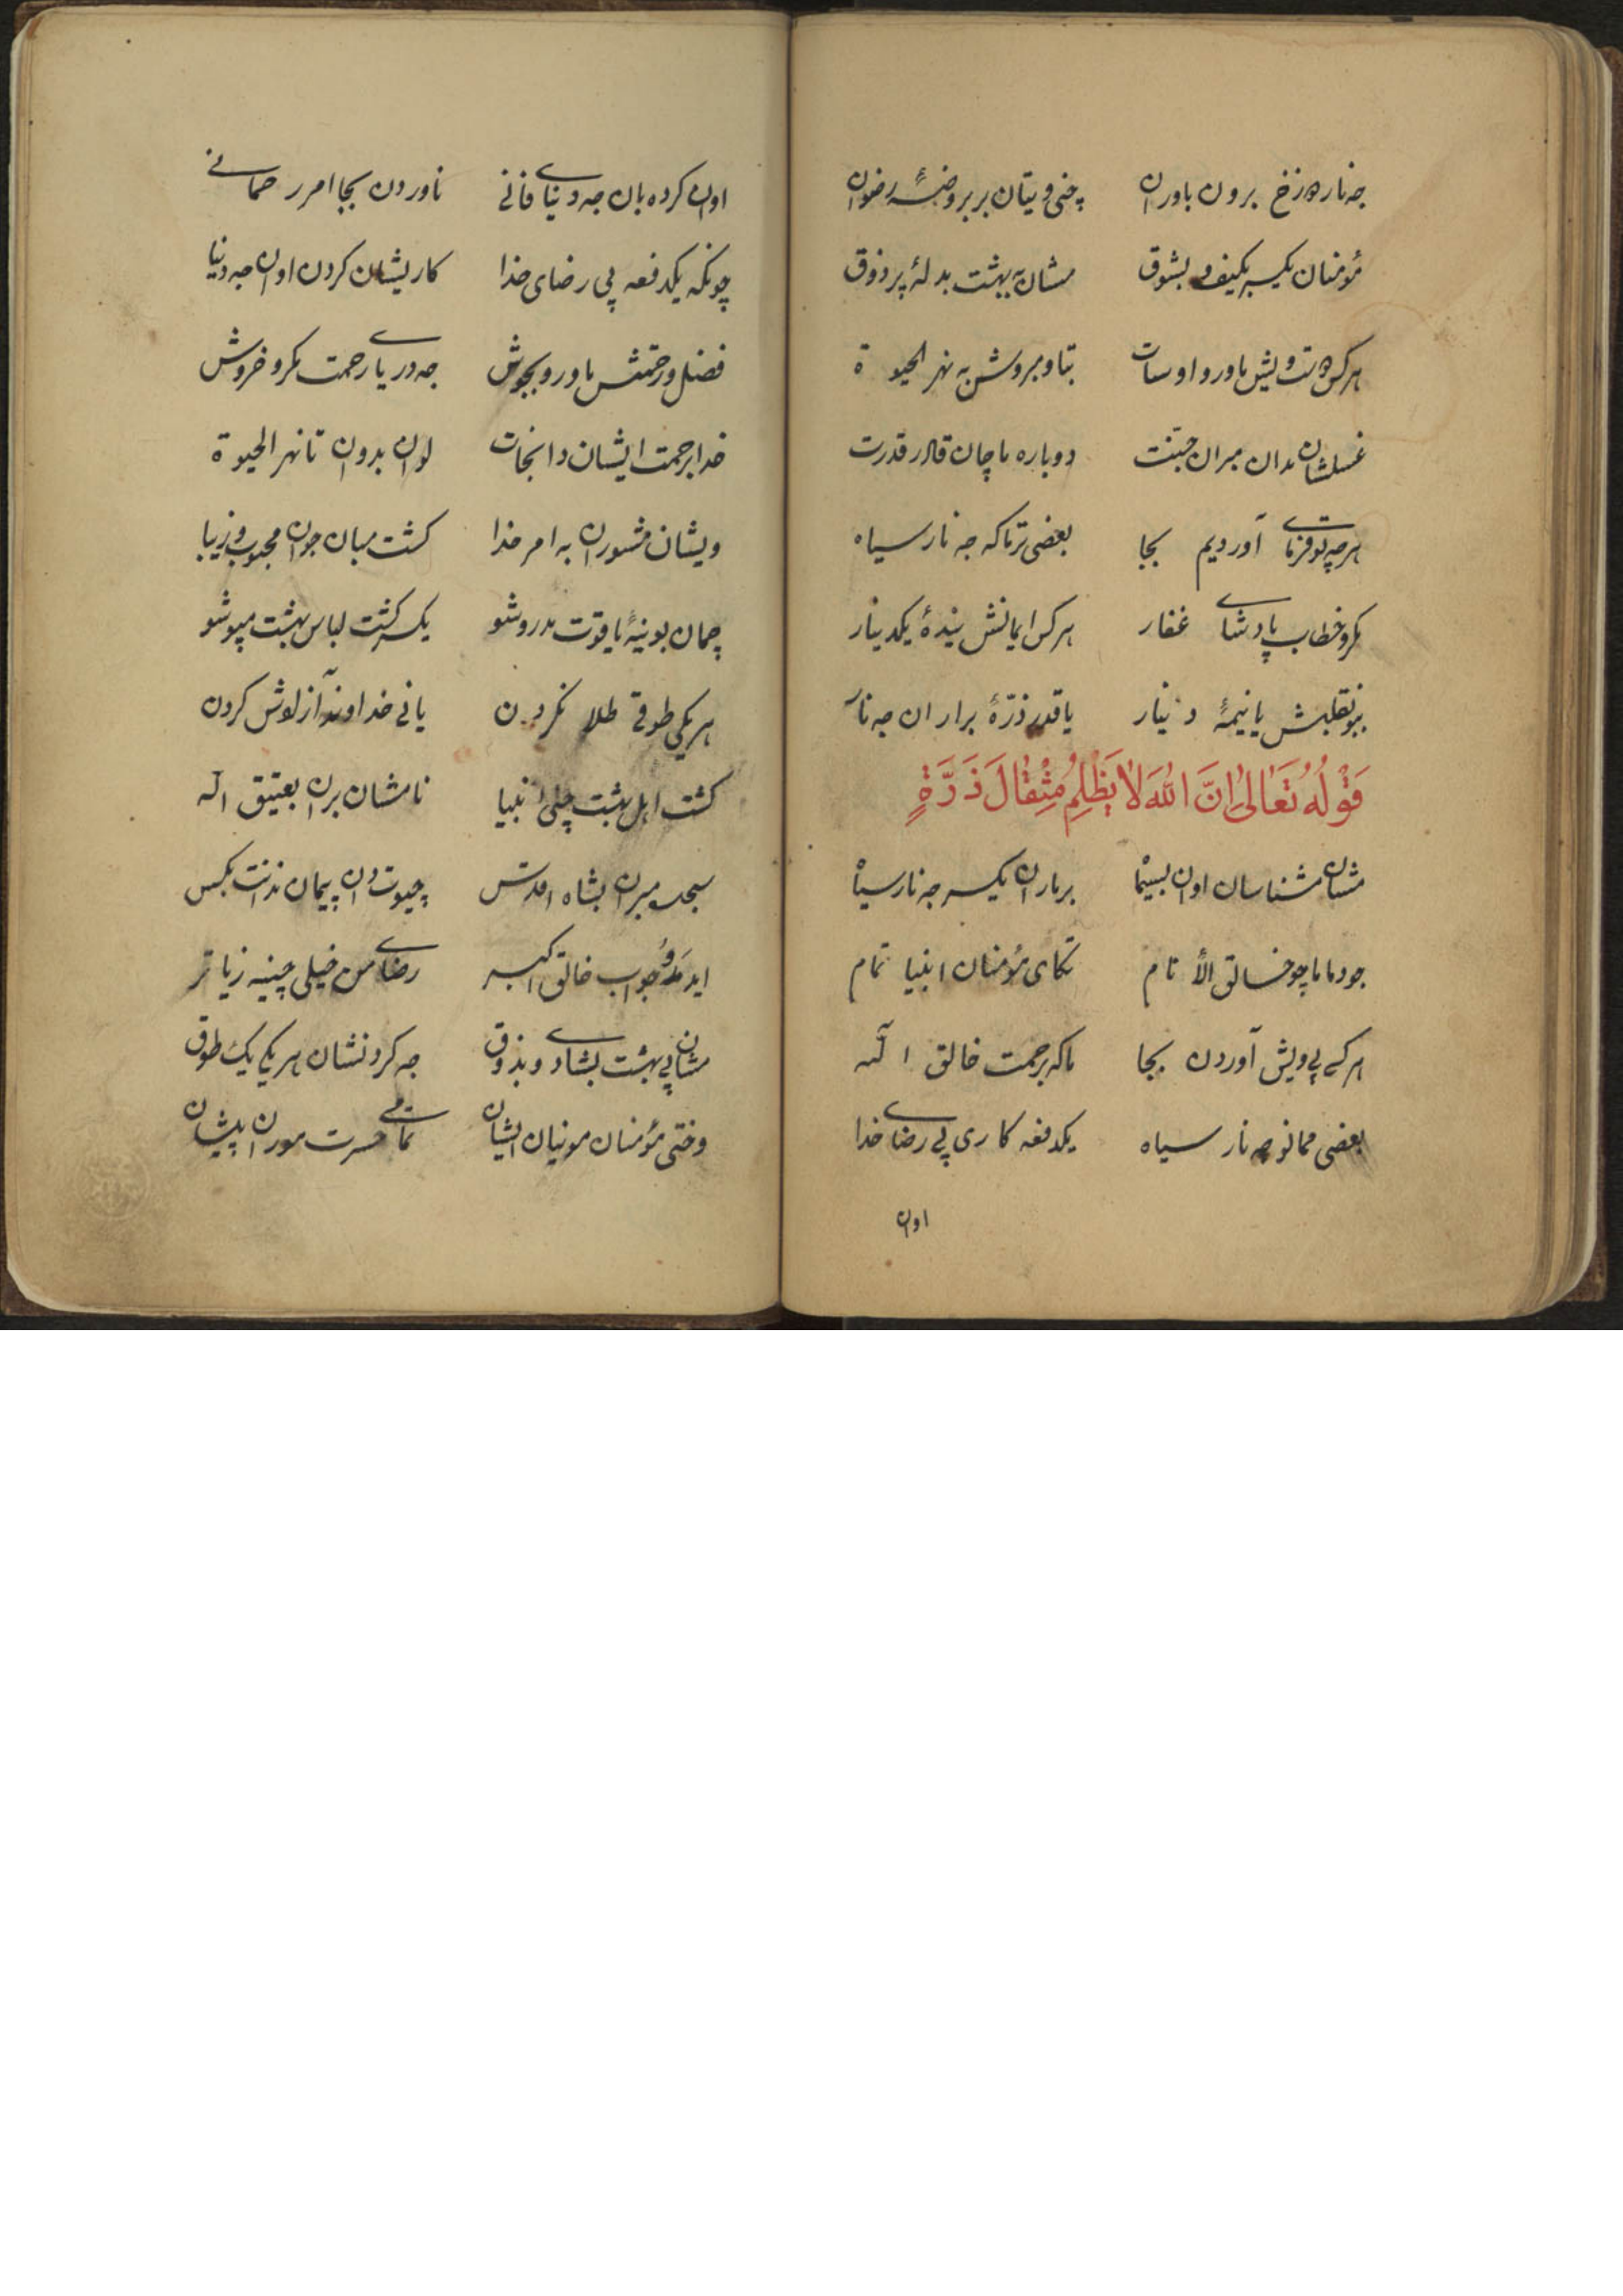 جه نار دوزخ برون باوران چنی ویتان بر بروضهٔ رضوان
مؤمنان یکسر بکیف و بشوق مشان به بهشت بدلهٔ پر ذوق
هرکس دست ویش ماورو او سات بتاو مبروش به نهر الحیوة
غسلشان مدان مبران جنت دوباره ماچان قادر قدرت
هرچه تو فرمای آوردیم بجا بعضی ترماکه جه نار سیاه
مکرو خطاب پادشای غفار هرکس ایمانش بیندهٔ یکدینار
ببو نقلبش یا نیمهٔ دینار یا قدر ذرّهٔ براران جه نار
قَوْلُهُ تَعَالىٰ اِنَّ اللّٰهَ لَا يَظْلِمُ مِثْقَالَ ذَرَّةٍ
مشان مشناسان اوان بسیما برماران یکسر جه نار سیا
جودما ماچو خالق الأنام تکای مؤمنان انبیا تمام
هرکسی پی ویش آوردن بجا ماکه برحمت خالق الله
بعضی ممانو جه نار سیاه یکدفعه کاری پی رضای خدا
اوان
اوان کرده بان جه دنیای فانی ناوردن بجا امر رحمانی
چونکه یکدفعه پی رضای خدا کاریشان کردن اوان جه دنیا
فضل و رحمتش ماورو بجوش جه دریای رحمت مکرو خروش
خدا برحمت ایشان دا نجات لوان بدوان تا نهر الحیوة
ویشان مشوران به امر خدا گشت مبان جوان محبوب و زیبا
چمان بوینهٔ یاقوت مدروشو یکسر گشت لباس بهشت مپوشو
هر یکی طوقی طلا نکردن یانی خداوند آزادش کردن
گشت اهل بهشت چنی انبیا نامشان بران بعتیق اله
سجده مبران بشاه اقدس چیوت دان پیمان ندانت بکس
ایدمدو جواب خالق اکبر رضای من خیلی چینه زیاتر
مشان پی بهشت بشادی و بذوق جه کردنشان هر یکی یک طوق
وختی مؤمنان موینان ایشان تمامی حسرت موران پیشان